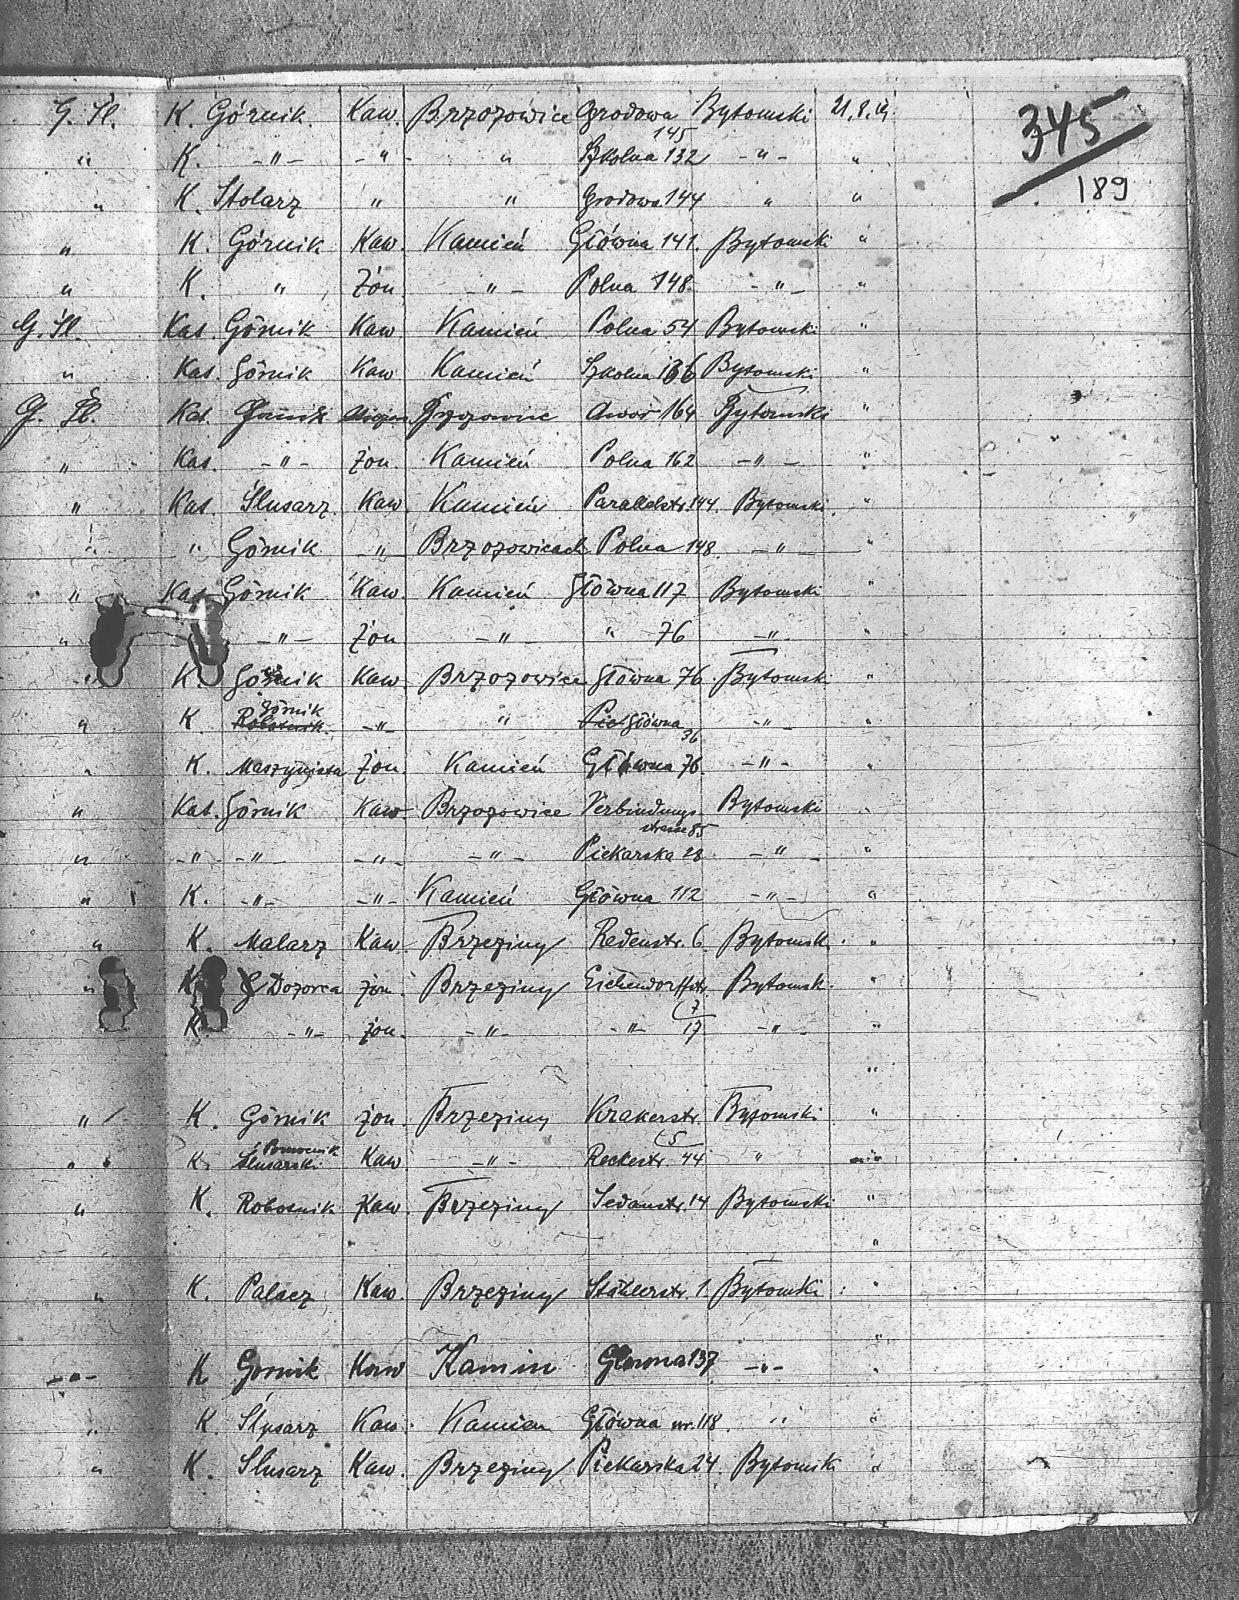 345
189
G. Śl. K. Górnik Kaw. Brzozowice Grodowa 145 Bytomski 21.8.19
" K. -"- -"- " Szkolna 132 -"- "
" K. Stolarz " " Grodowa 144 " "
" K. Górnik Kaw. Kamień Główna 141 Bytomski "
" K. " Żon. -"- Polna 148 -"- "
G. Śl. Kat. Górnik Kaw Kamień Polna 54 Bytomski "
" Kat. Górnik Kaw Kamień Szkolna 136 Bytomski "
G. Śl. Kat. Górnik Brzozowic 164 Bytomski "
" Kat. -"- żon. Kamień Polna 162 -"- "
" Kat. Ślusarz Kaw. Kamień Parallelstr. 144 Bytomski. "
" " Górnik -"- Brzozowicach Polna 148 -"- "
" Kat. Górnik Kaw. Kamień Główna 117 Bytomski "
" -"- Żon -"- " 76 -"- "
" K. Górnik Kaw. Brzozowice Główna 76 Bytomsk "
" K. Robotnik Górnik -"- " Główna 36 -"- "
" K. Maszynista Żon. Kamień Główna 76 -"- "
" Kat. Górnik Kaw Brzozowice Verbindungsstrasse 85 Bytomski "
" -"- -"- -"- -"- Piekarska 28 -"- "
" K. -"- -"- Kamień Główna 112 -"- "
" K. Malarz Kaw Brzeziny Redenstr. 6 Bytomsk. "
" K. Dozorca żon. Brzeziny Eichendorffstr. 7 Bytomsk. "
K. -"- żon. -"- -"- 17 -"- "
"
" K. Górnik żon. Brzeziny Krakerstr. 5 Bytomski "
" K. Pomocnik Ślusarski Kaw -"- Reckestr. 44 " "
" K. Robotnik Kaw. Brzeziny Sedanstr. 14 Bytomski "
"
" K. Palacz Kaw. Brzeziny 1 Bytomski "
"
-"- K Gornik Kaw Kamin Głowna 137 -"- "
" K. Ślusarz Kaw. Kamien Główna nr. 118 " "
" K. Slusarz Kaw. Brzeziny Piekarska 24 Bytomsk "